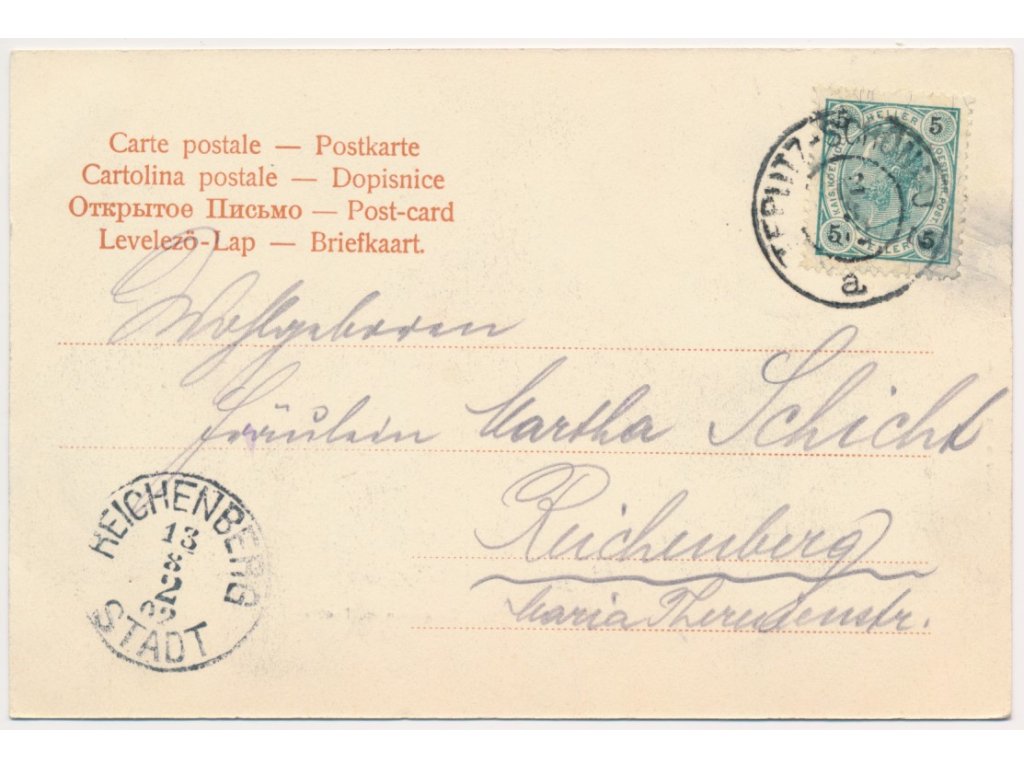 Carte postale — Postkarte
Cartolina postale — Dopisnice
Открытое Письмо — Post-card
Levelező-Lap — Briefkaart.
5 HELLER 5
KAIS. KOENIGL. OESTERR. POST.
5 HELLER 5
TEPLITZ-SCHÖNAU
a
Wohlgeboren
Fräulein Martha Schicht
Reichenberg
Maria Theresienstr.
REICHENBERG
13
STADT